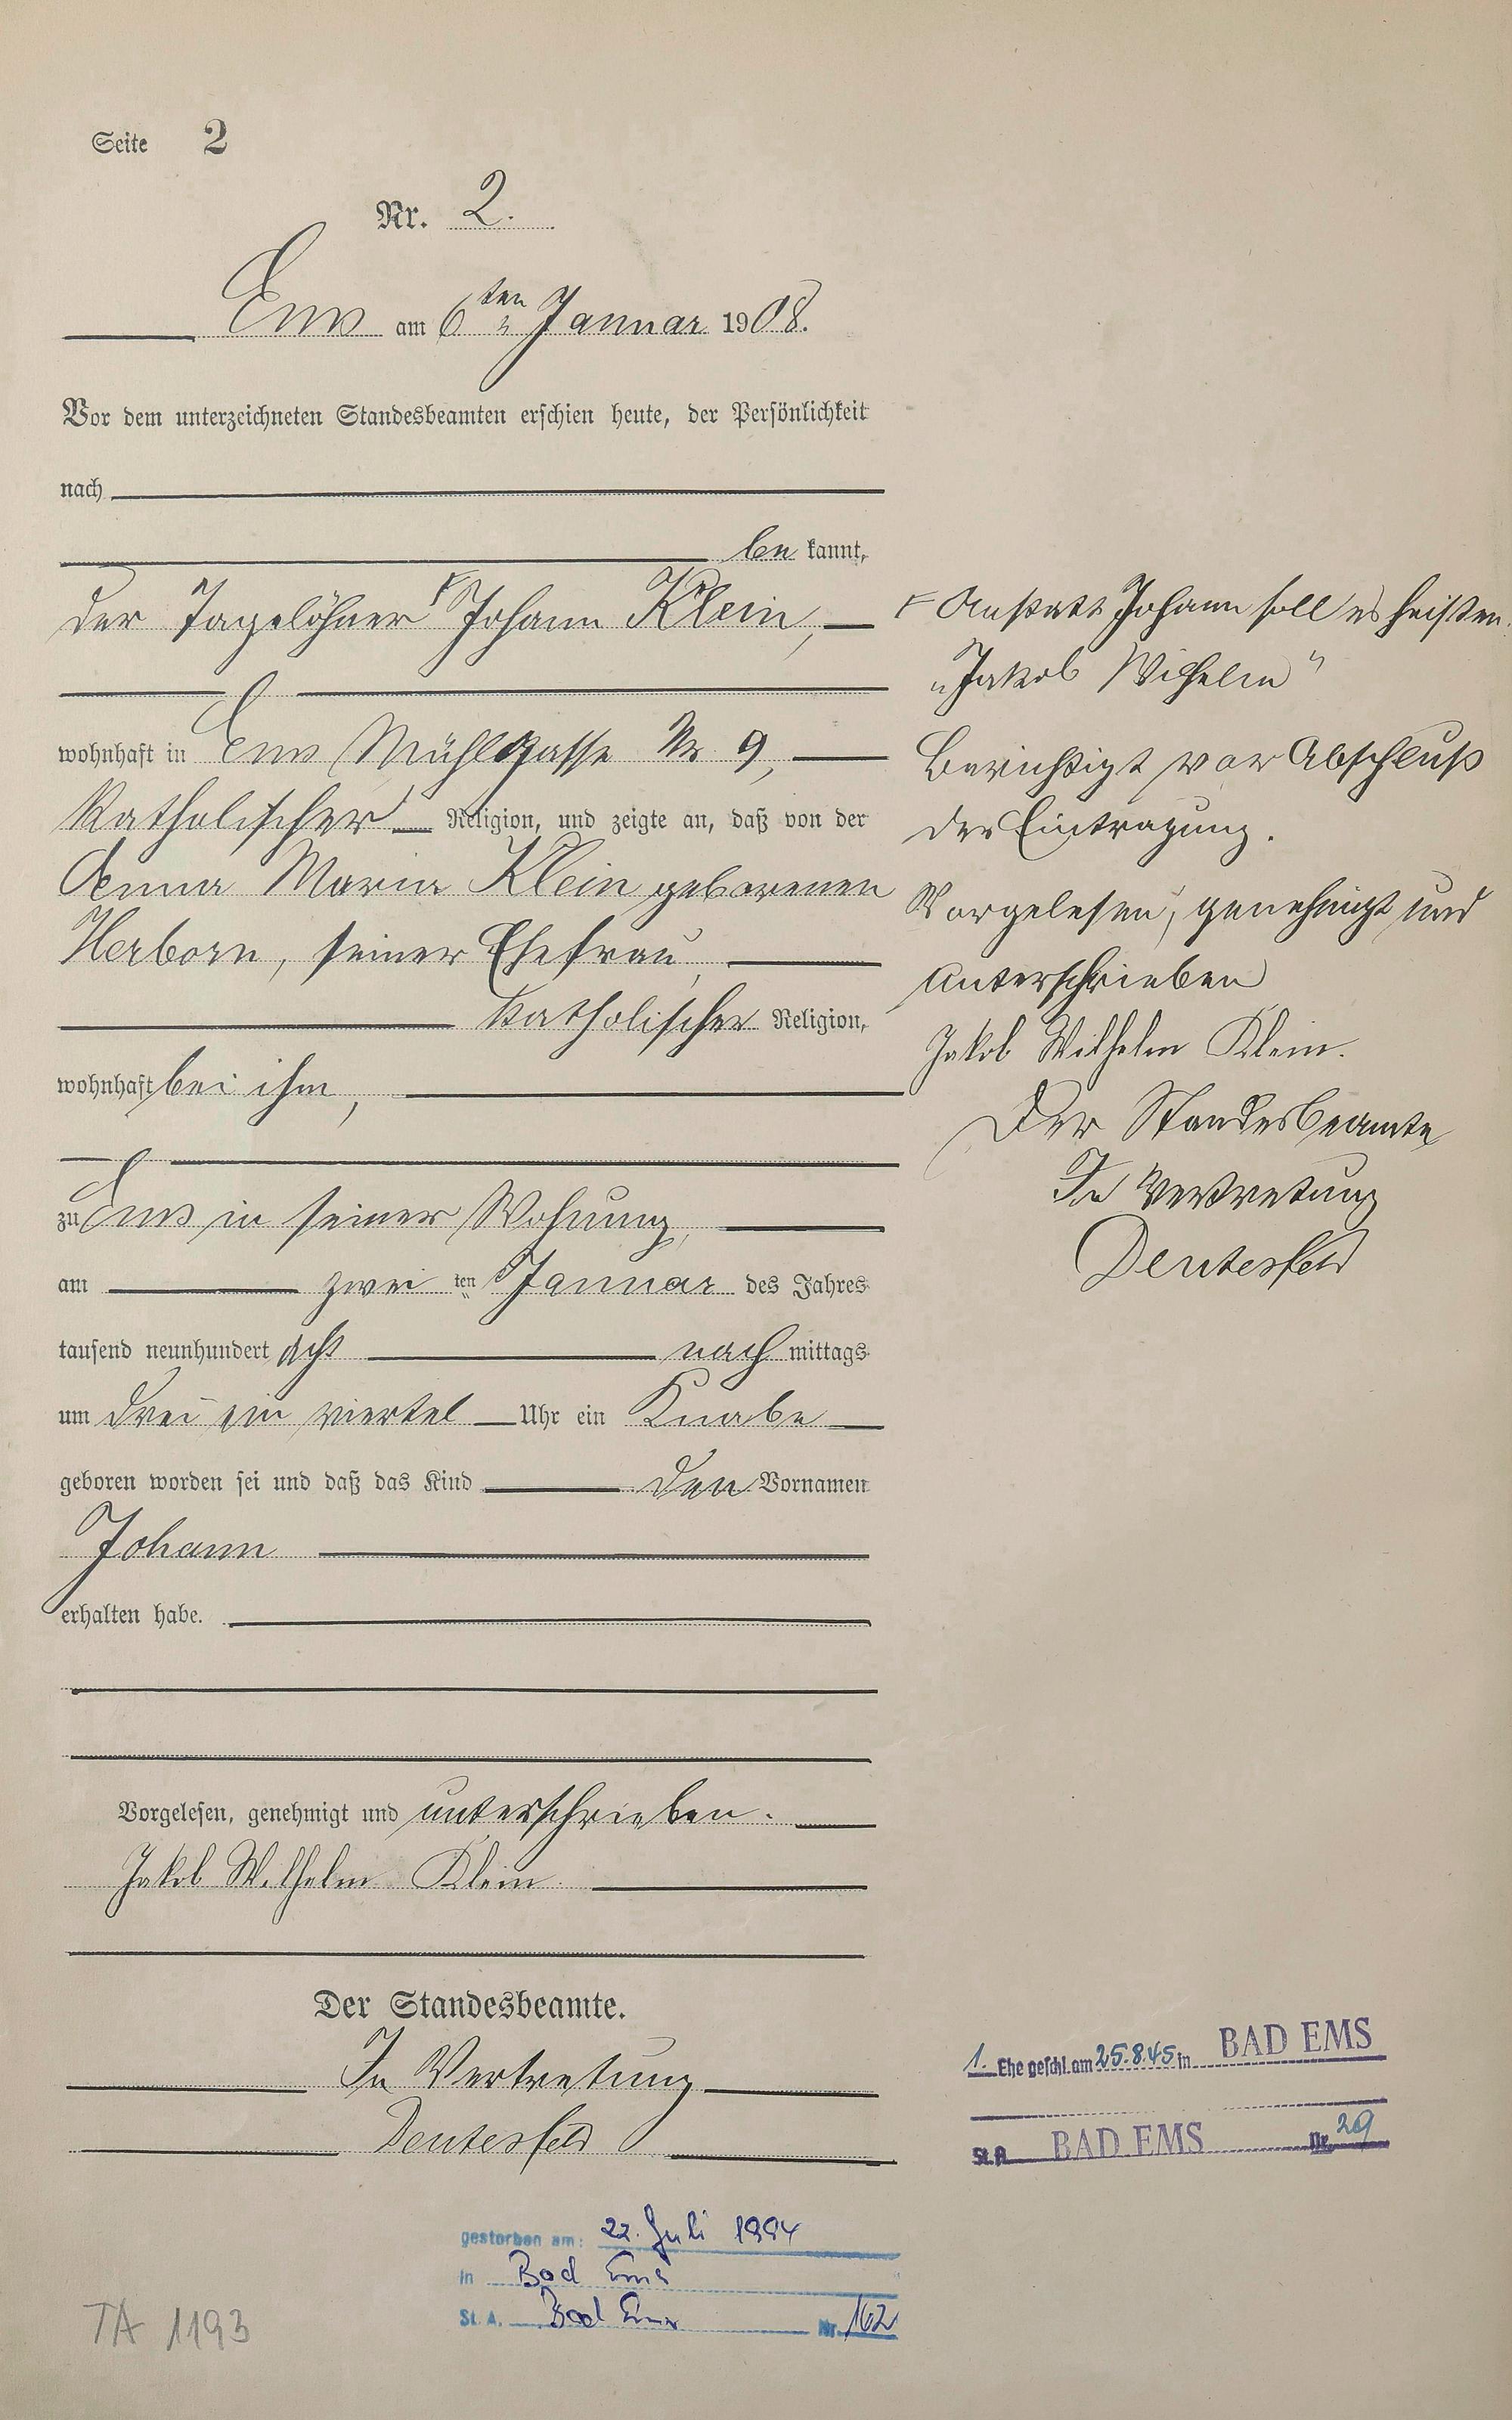 Seite 2
Nr. 2.
Ems am 6ten Januar 1908.
Vor dem unterzeichneten Standesbeamten erschien heute, der Persönlichkeit
nach
be kannt,
der Tagelöhner ⌜ Johann Klein,
wohnhaft in Ems Mühlgasse Nr. 9,
katholischer Religion, und zeigte an, daß von der
Anna Maria Klein geborenen
Herborn, seiner Ehefrau,
katholischer Religion,
wohnhaft bei ihm,
zu Ems in seiner Wohnung,
am zwei ten Januar des Jahres
tausend neunhundert acht nach mittags
um drei ein viertel Uhr ein Knabe
geboren worden sei und daß das Kind den Vornamen
Johann
erhalten habe.
Vorgelesen, genehmigt und unterschrieben.
Jakob Wilhelm Klein.
Der Standesbeamte.
In Vertretung
Deutesfeld
⌜ Anstatt Johann soll es heißen.
„Jakob Wilhelm"
Berichtigt vor Abschluß
der Eintragung.
Vorgelesen, genehmigt und
unterschrieben
Jakob Wilhelm Klein.
Der Standesbeamte
In Vertretung
Deutesfeld
1. Ehe geschl. am 25.8.45 in BAD EMS
St.A. BAD EMS Nr. 29
gestorben am: 22. Juli 1994
in Bad Ems
St. A. Bad Ems Nr. 162
TA 1193